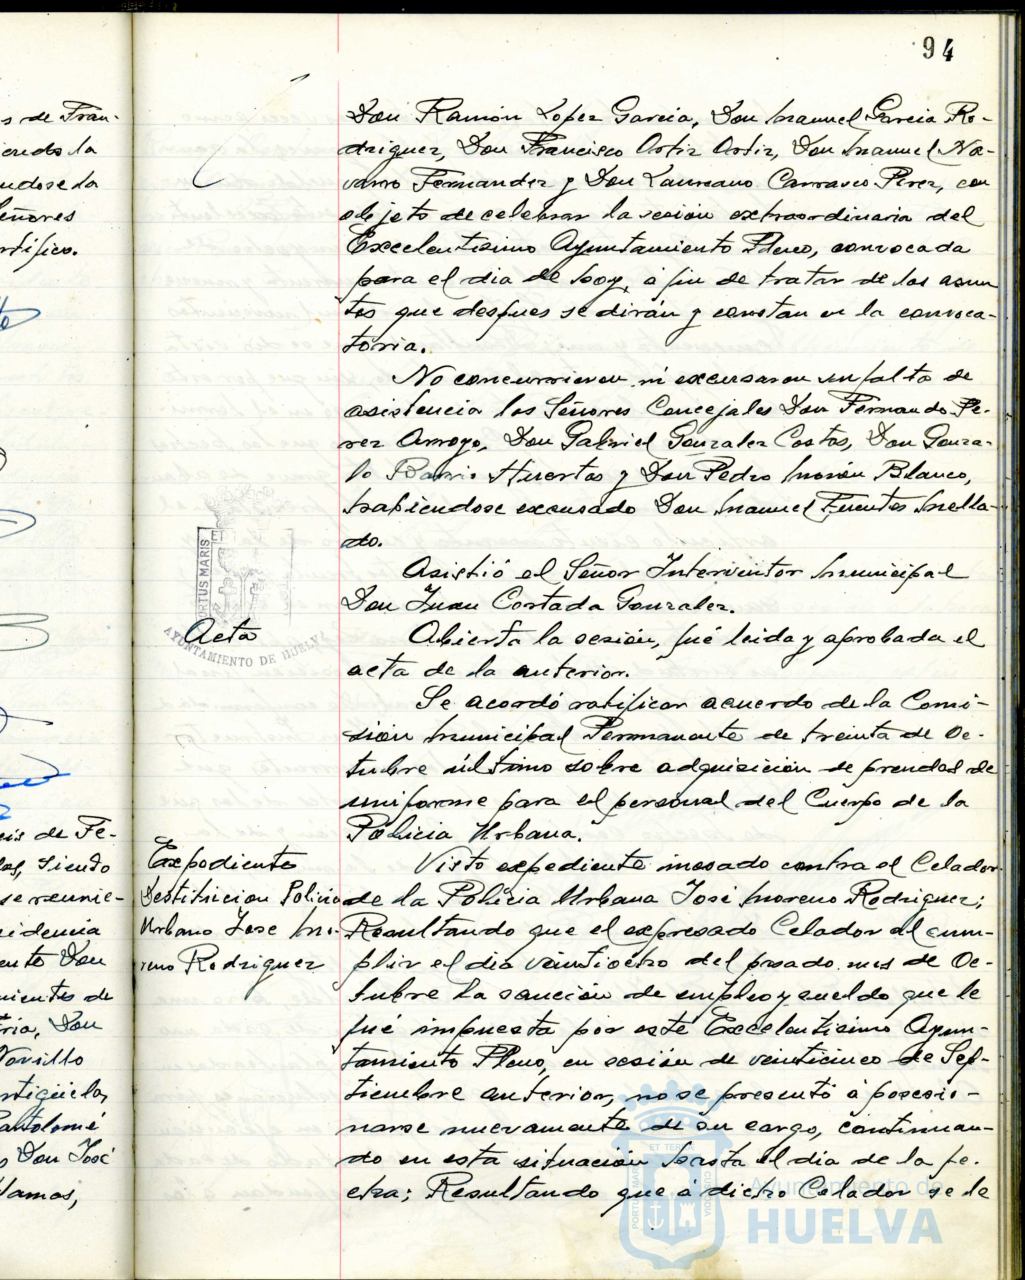 94
s de Fran-
iendo la
ndose la
eñores
rtifico.
eis de Fe-
los, siendo
se reunie-
idencia
ento Don
mientos de
ria, Don
Vorillo
Bartolomé
s Don José
lamas,
PORTUS MARIS ET
AYUNTAMIENTO DE HUELVA
Acta
Expediente
Destitucion Policia
Urbano Jose Mo-
reno Rodriguez
Don Ramón Lopez Garcia, Don Manuel Garcia Ro-
driguez, Don Francisco Ortiz Ortiz, Don Manuel Na-
varro Fernandez y Don Laureano Carrasco Perez, con
objeto de celebrar la sesión extraordinaria del
Excelentisimo Ayuntamiento Pleno, convocada
para el dia de hoy, á fin de tratar de los asun
tos que despues se dirán y constan en la convoca-
toria.
No concurrieron ni excusaron su falta de
asistencia los Señores Concejales Don Fernando Pe-
rez Arroyo, Don Gabriel Gonzalez Costas, Don Gonza-
lo Barrio Huertas y Don Pedro Morón Blanco,
habiendose excusado Don Manuel Fuentes Mella-
do.
Asistió el Señor Interventor Municipal
Don Juan Cortada Gonzalez.
Abierta la sesión, fué leida y aprobada el
acta de la anterior.
Se acordó ratificar acuerdo de la Comi-
sión Municipal Permanente de treinta de Oc-
tubre último sobre adquisición de prendas de
uniforme para el personal del Cuerpo de la
Policia Urbana.
Visto expediente incoado contra el Celador
de la Policia Urbana José Moreno Rodriguez;
Resultando que el expresado Celador al cum-
plir el dia veintiocho del pasado mes de Oc-
tubre la sanción de empleo y sueldo que le
fué impuesta por este Excelentisimo Ayun-
tamiento Pleno, en sesión de veinticinco de Sep-
tiembre anterior, no se presentó á posesio-
narse nuevamente de su cargo, continuan-
do en esta situación hasta el dia de la fe-
cha; Resultando que á dicho Celador se le
Ayuntamiento de
HUELVA